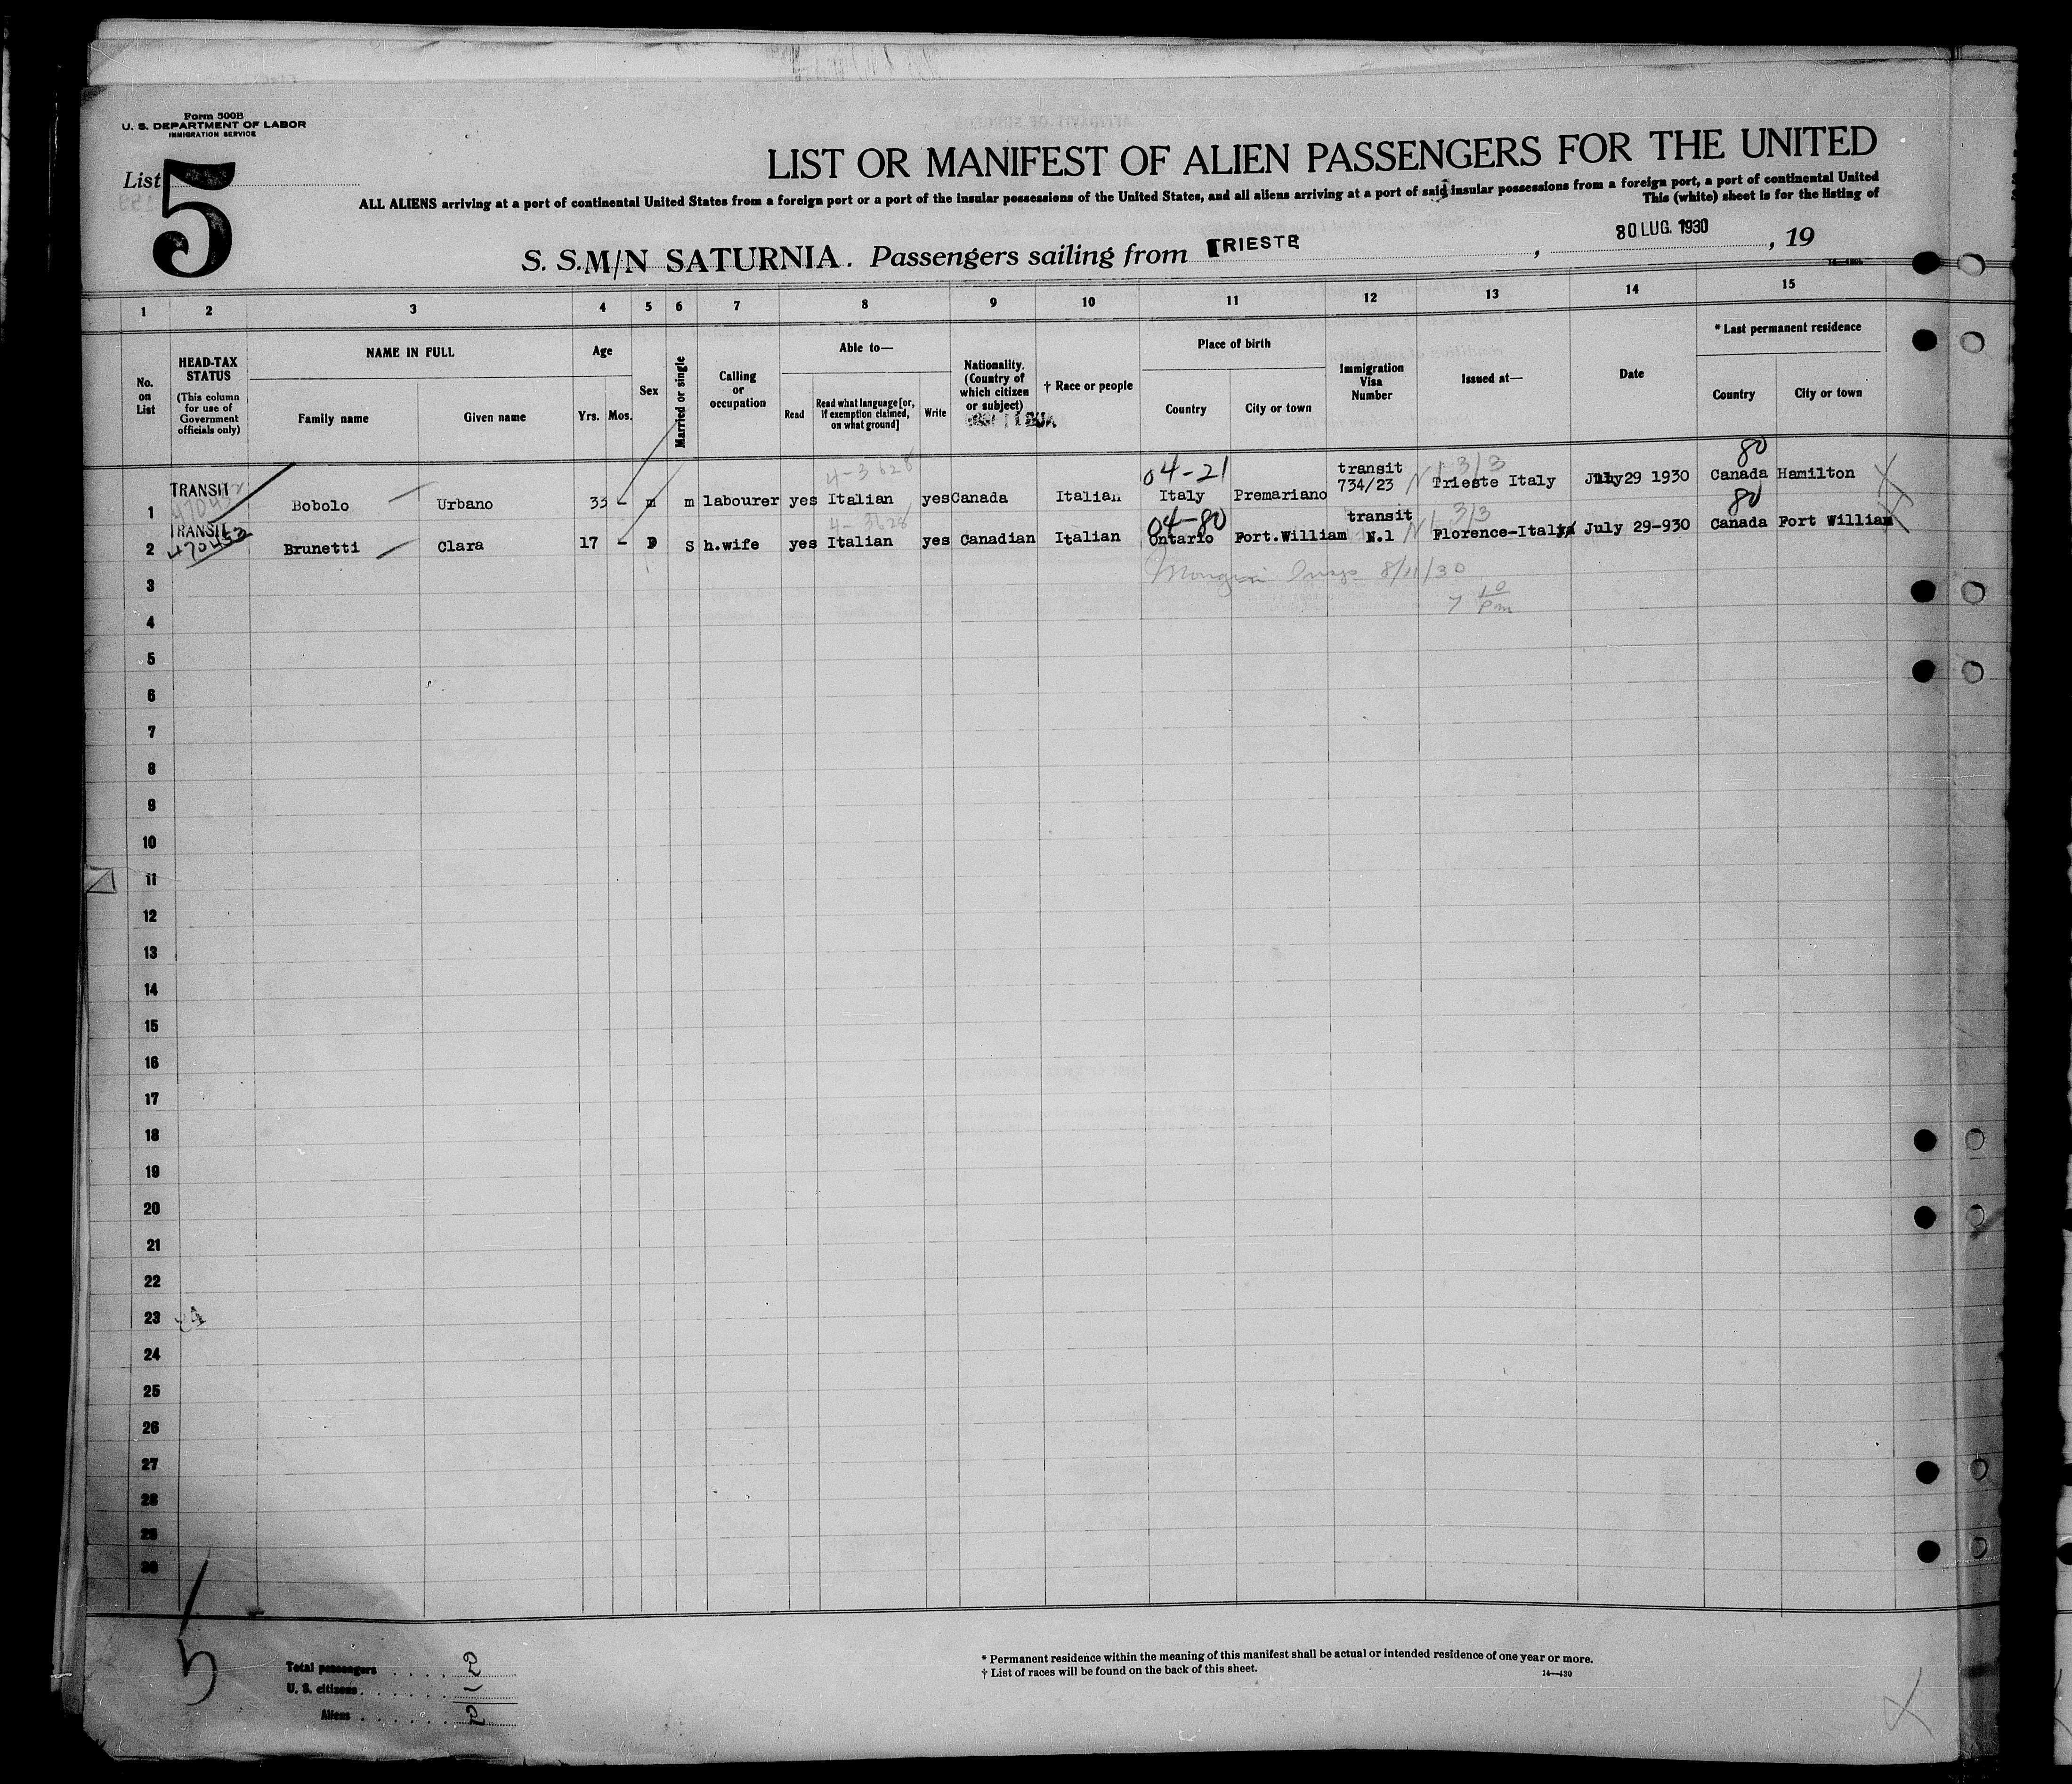 Form 500B
U. S. DEPARTMENT OF LABOR
IMMIGRATION SERVICE
List 5
LIST OR MANIFEST OF ALIEN PASSENGERS FOR THE UNITED
ALL ALIENS arriving at a port of continental United States from a foreign port or a port of the insular possessions of the United States, and all aliens arriving at a port of said insular possessions from a foreign port, a port of continental United
This (white) sheet is for the listing of
S. S. M/N SATURNIA. Passengers sailing from TRIESTE, 30 LUG. 1930, 19
1 2 3 4 5 6 7 8 9 10 11 12 13 14 15
No. on List
HEAD-TAX STATUS
(This column for use of Government officials only)
NAME IN FULL
Family name
Given name
Age
Yrs. Mos.
Sex
Married or single
Calling or occupation
Able to—
Read
Read what language [or, if exemption claimed, on what ground]
Write
Nationality. (Country of which citizen or subject)
† Race or people
Place of birth
Country
City or town
Immigration Visa Number
Issued at—
Date
* Last permanent residence
Country
City or town
4-3628 04-21 transit 313 80
1 TRANSIT Bobolo Urbano 33 - m m labourer yes Italian yes Canada Italian Italy Premariano 734/23 Trieste Italy July 29 1930 Canada Hamilton
4-3628 04-80 transit 313 80
2 TRANSIT 470432 Brunetti Clara 17 - S h.wife yes Italian yes Canadian Italian Ontario Fort.William N.1 Florence-Italy July 29-930 Canada Fort William
8/11/30
3
7 10 Pm
4
5
6
7
8
9
10
11
12
13
14
15
16
17
18
19
20
21
22
23
24
25
26
27
28
29
30
5
Total passengers 2
U. S. citizens -
Aliens 2
* Permanent residence within the meaning of this manifest shall be actual or intended residence of one year or more.
† List of races will be found on the back of this sheet.
14—430